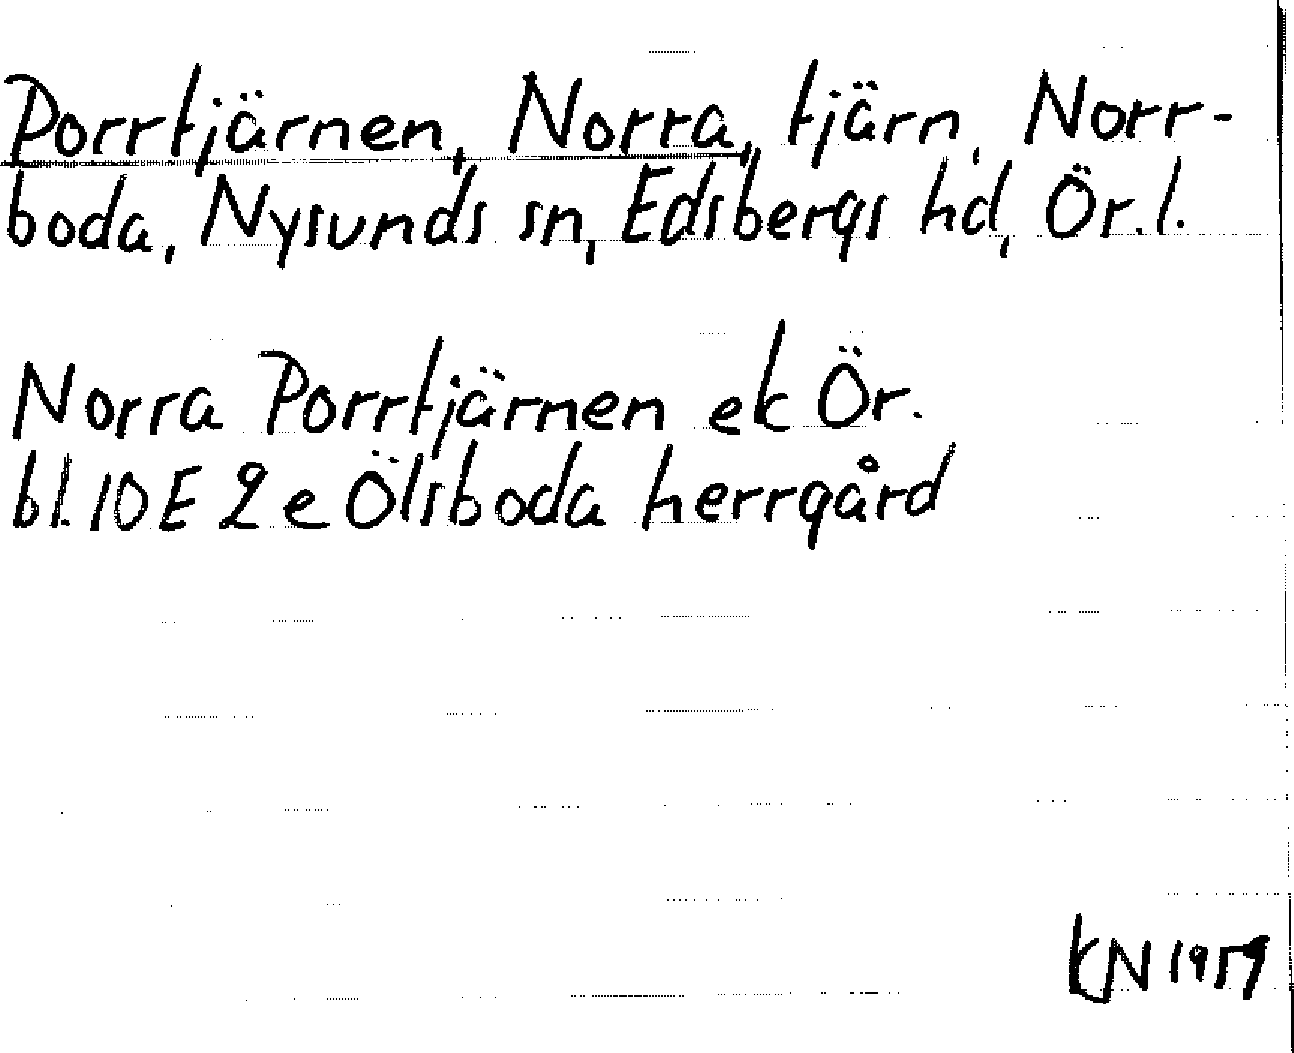 Porrtjärnen, Norra, tjärn, Norr-
boda, Nysunds sn, Edsbergs hd, Ör.l.
Norra Porrtjärnen ek Ör.
bl. 10E 2e Ölsboda herrgård
KN 1959